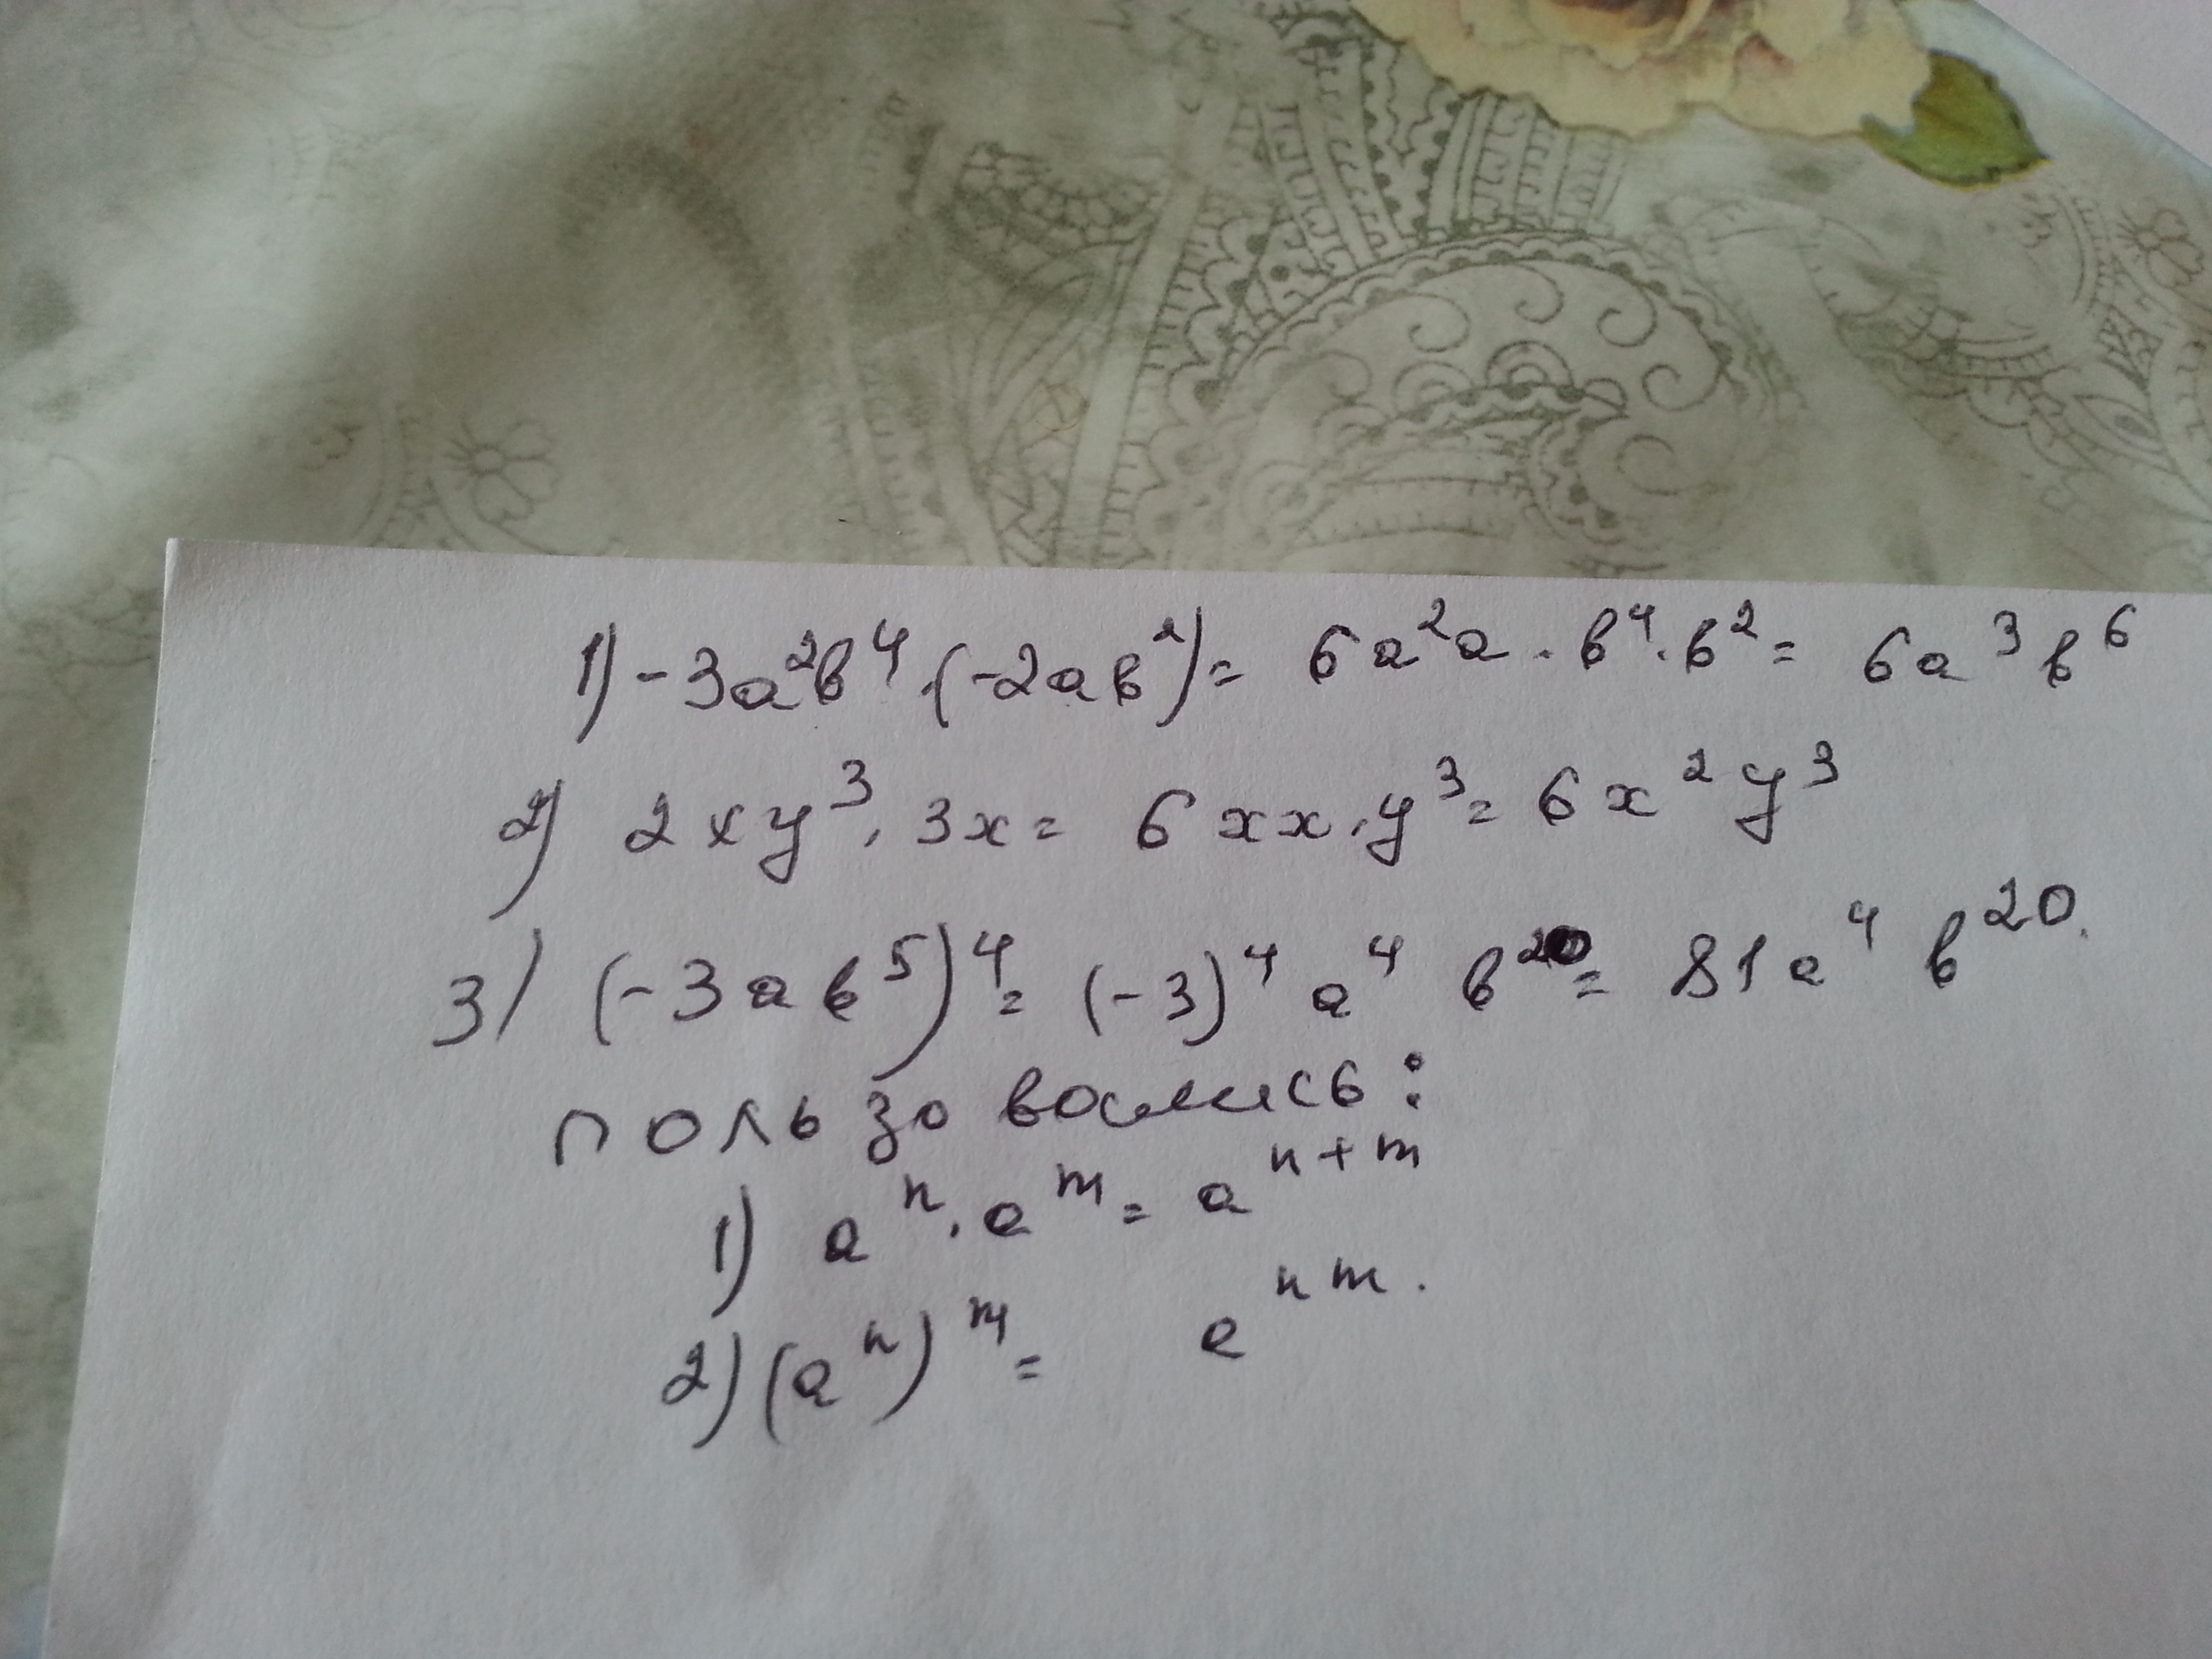 1) -3a²b⁴·(-2ab²)= 6a²a·b⁴·b²= 6a³b⁶
2) 2xy³·3x= 6xx·y³= 6x²y³
3) (-3ab⁵)⁴= (-3)⁴a⁴b²⁰= 81a⁴b²⁰.
пользовались:
1) aⁿ·aᵐ= aⁿ⁺ᵐ
2) (aⁿ)ᵐ= aⁿᵐ.